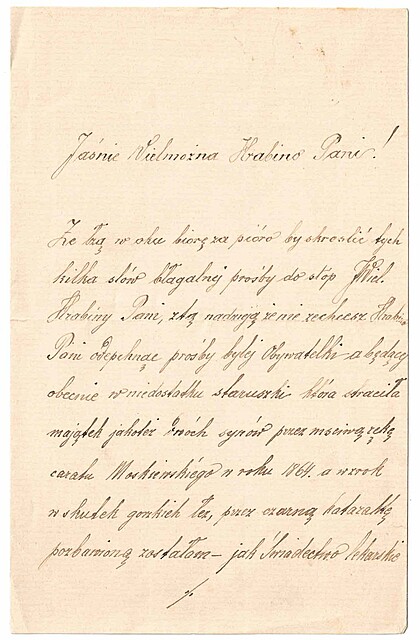 Jaśnie Wielmożna Hrabino Pani!
Ze łzą w oku biorę za pióro by skreślić tych
kilka słów błagalnej prośby do stóp JWiel.
Hrabiny Pani, z tą nadzieją że nie zechcesz Hrabi-
Pani odepchnąć prośby byłej Obywatelki a będącej
obecnie w niedostatku staruszki która straciła
majątek jakoteż dwóch synów przez mściwą rękę
caratu Moskiewskiego w roku 1864. a wzrok
w skutek gorzkich łez, przez czarną kataraktę
pozbawioną zostałam – jak Świadectwo lekarskie